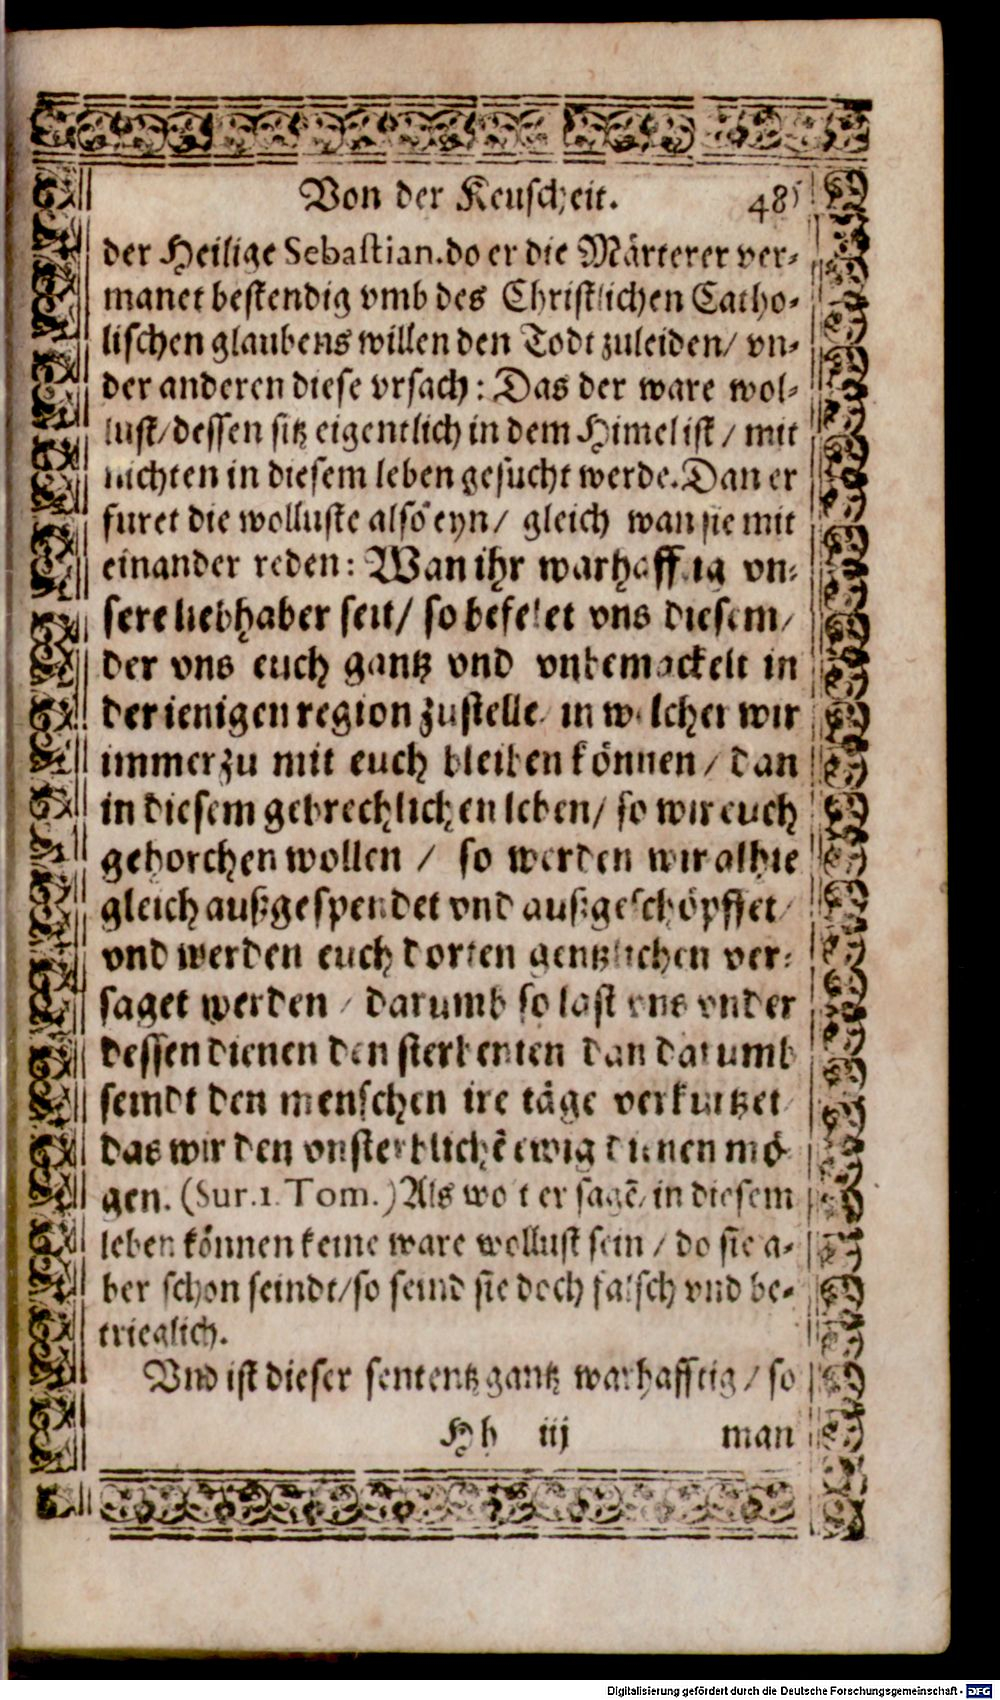 Von der Keuscheit. 485
der Heilige Sebastian. do er die Märterer ver-
manet bestendig vmb des Christlichen Catho-
lischen glaubens willen den Todt zuleiden/ vn-
der anderen diese vrsach: Das der ware wol-
lust/ dessen sitz eigentlich in dem Himel ist/ mit
nichten in diesem leben gesucht werde. Dan er
furet die wolluste also eyn/ gleich wan sie mit
einander reden: Wan ihr warhafftig vn-
sere liebhaber seit/ so befelet vns diesem/
der vns euch gantz vnd vnbemackelt in
der ienigen region zustelle/ in welcher wir
immerzu mit euch bleiben können/ dan
in diesem gebrechlichen leben/ so wir euch
gehorchen wollen/ so werden wir alhie
gleich außgespendet vnd außgeschöpffet/
vnd werden euch dorten gentzlichen ver-
saget werden/ darumb so last vns vnder
dessen dienen den sterbenten dan darumb
seindt den menschen ire täge verkurtzet/
das wir den vnsterblichē ewig dienen mö-
gen. (Sur. 1. Tom.) Als wolt er sagē/ in diesem
leben können keine ware wollust sein/ do sie a-
ber schon seindt/ so seind sie doch falsch vnd be-
trieglich.
Vnd ist dieser sententz gantz warhafftig/ so
Hh iij man
Digitalisierung gefördert durch die Deutsche Forschungsgemeinschaft - DFG